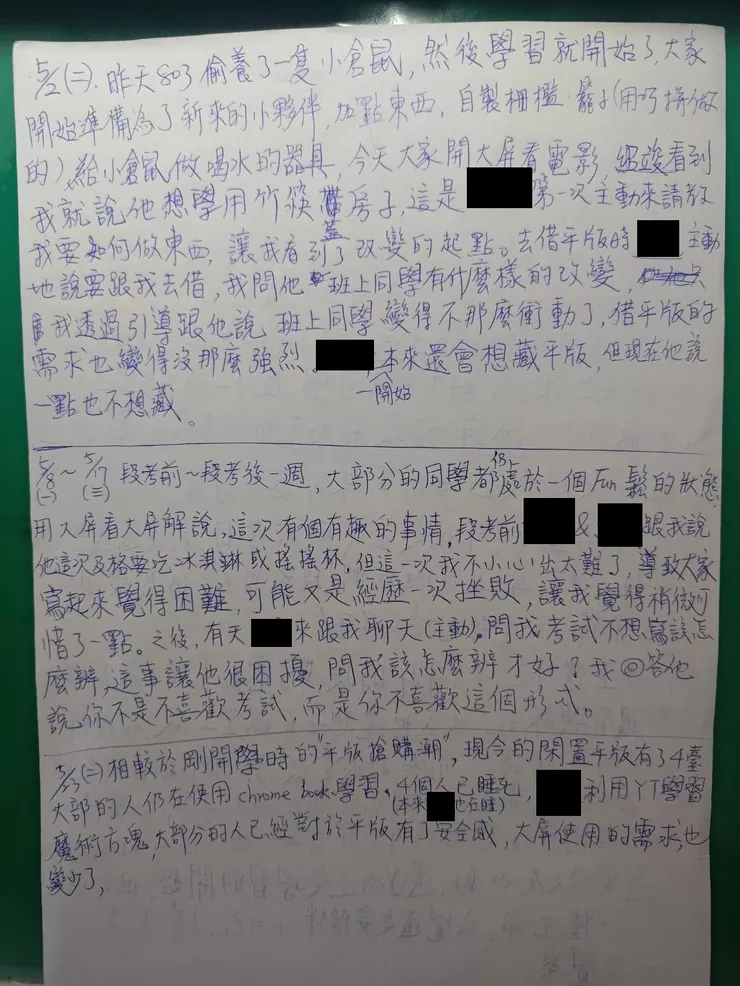 5/2(二). 昨天803偷養了一隻小倉鼠, 然後學習就開始了, 大家
開始準備為了新來的小夥伴, 加點東西, 自製柵檻 籠子(用巧拼做
的), 給小倉鼠做喝水的器具, 今天大家開大屏看電影, 看到
我就說他想學用竹筷 蓋 房子, 這是 第一次主動來請教
我要如何做東西, 讓我看到了改變的起點。去借平版時 主動
地說要跟我去借, 我問他 班上同學有什麼樣的改變,
我透過引導跟他說 班上同學變得不那麼衝動了, 借平版的
需求也變得沒那麼強烈。 本來還會想藏平版, 但現在他說
一開始
一點也不想藏。
5/8(一)~5/17(三) 段考前~段考後一週, 大部分的同學都處於一個Fun鬆的狀態
用大屏看大屏解說, 這次有個有趣的事情, 段考前 & 跟我說
他這次及格要吃冰淇淋或搖搖杯, 但這一次我不小心出太難了, 導致大家
寫起來覺得困難, 可能又是經歷一次挫敗, 讓我覺得稍微可
惜了一點。之後, 有天 來跟我聊天(主動), 問我考試不想寫該怎
麼辦, 這事讓他很困擾, 問我該怎麼辦才好? 我回答他
說你不是不喜歡考試, 而是你不喜歡這個形式。
5/23(二) 相較於剛開學時的"平版搶購潮", 現今的閑置平版有了4臺
大部的人仍在使用chrome book學習, 4個人已睡死, 利用YT學習
(本來 也在睡)
魔術方塊, 大部分的人已經對於平版有了安全感, 大屏使用的需求也
變少了,